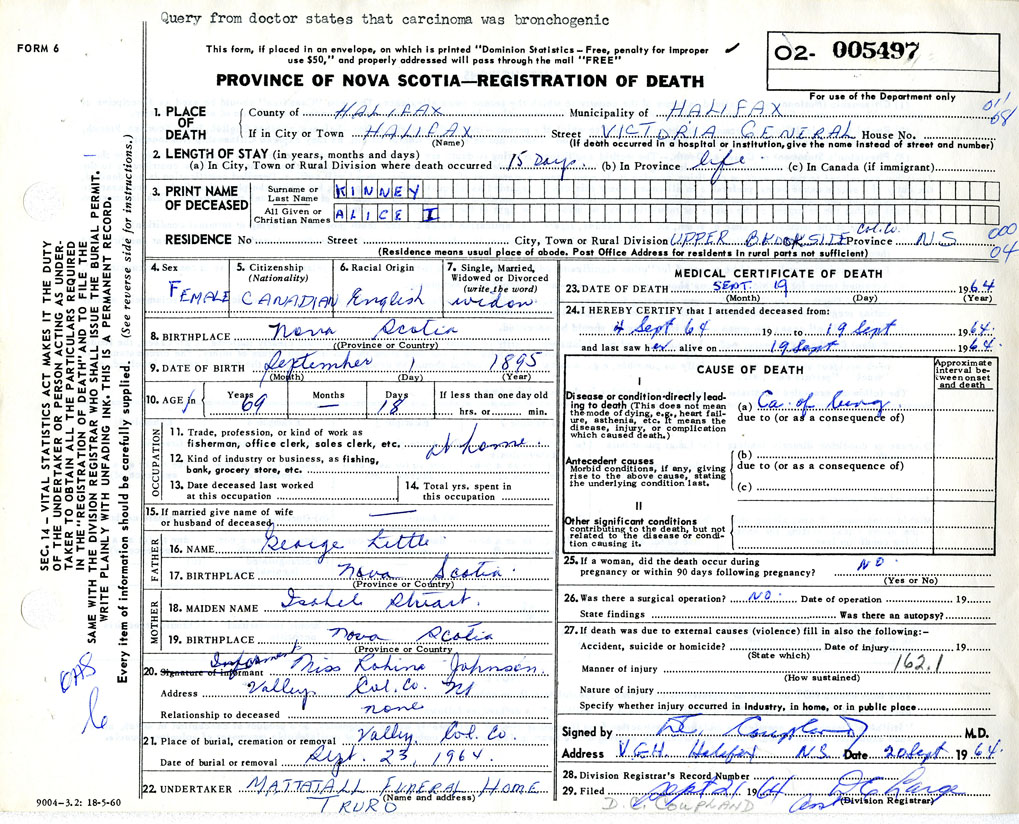 Query from doctor states that carcinoma was bronchogenic
FORM 6
This form, if placed in an envelope, on which is printed "Dominion Statistics – Free, penalty for improper
use $50," and properly addressed will pass through the mail "FREE"
O2- 005497
PROVINCE OF NOVA SCOTIA—REGISTRATION OF DEATH
For use of the Department only
011
68
SEC. 14 – VITAL STATISTICS ACT MAKES IT THE DUTY
OF THE UNDERTAKER OR PERSON ACTING AS UNDER-
TAKER TO OBTAIN ALL THE PARTICULARS REQUIRED
IN THE "REGISTRATION OF DEATH" AND TO FILE THE
SAME WITH THE DIVISION REGISTRAR WHO SHALL ISSUE THE BURIAL PERMIT.
WRITE PLAINLY WITH UNFADING INK. THIS IS A PERMANENT RECORD.
Every item of information should be carefully supplied. (See reverse side for instructions.)
OAS
6
1. PLACE OF DEATH
County of HALIFAX Municipality of HALIFAX
If in City or Town HALIFAX Street VICTORIA GENERAL House No.
(Name) (If death occurred in a hospital or institution, give the name instead of street and number)
2. LENGTH OF STAY (in years, months and days)
(a) In City, Town or Rural Division where death occurred 15 Days (b) In Province life (c) In Canada (if immigrant)
3. PRINT NAME OF DECEASED
Surname or Last Name KINNEY
All Given or Christian Names ALICE I
RESIDENCE No Street City, Town or Rural Division UPPER BROOKSIDE Col. Co. Province N.S
(Residence means usual place of abode. Post Office Address for residents in rural parts not sufficient)
000
04
4. Sex FEMALE
5. Citizenship (Nationality) CANADIAN
6. Racial Origin English
7. Single, Married, Widowed or Divorced (write the word) widow
8. BIRTHPLACE Nova Scotia
(Province or Country)
9. DATE OF BIRTH September 1 1895
(Month) (Day) (Year)
10. AGE in Years 69 Months — Days 18 If less than one day old hrs. or min.
OCCUPATION
11. Trade, profession, or kind of work as
fisherman, office clerk, sales clerk, etc. at home
12. Kind of industry or business, as fishing,
bank, grocery store, etc.
13. Date deceased last worked
at this occupation
14. Total yrs. spent in
this occupation
15. If married give name of wife
or husband of deceased —
FATHER
16. NAME George Little
17. BIRTHPLACE Nova Scotia
(Province or Country)
MOTHER
18. MAIDEN NAME Isabel Stuart
19. BIRTHPLACE Nova Scotia
(Province or Country)
Informant
20. Signature of informant Miss Robina Johnson
Address Valley Col. Co. NS
Relationship to deceased none
21. Place of burial, cremation or removal Valley Col. Co.
Date of burial or removal Sept. 23, 1964.
22. UNDERTAKER MATTATALL FUNERAL HOME
(Name and address)
TRURO
9004-3.2: 18-5-60
MEDICAL CERTIFICATE OF DEATH
23. DATE OF DEATH SEPT. 19 1964
(Month) (Day) (Year)
24. I HEREBY CERTIFY that I attended deceased from:
4 Sept 64 19 to 19 Sept 1964.
and last saw her alive on 19 Sept 1964.
CAUSE OF DEATH
Approximate interval between onset and death
I
Disease or condition directly lead-
ing to death (This does not mean
the mode of dying, e.g., heart fail-
ure, asthenia, etc. It means the
disease, injury, or complication
which caused death.)
(a) Ca. of lung
due to (or as a consequence of)
Antecedent causes
Morbid conditions, if any, giving
rise to the above cause, stating
the underlying condition last.
(b)
due to (or as a consequence of)
(c)
II
Other significant conditions
contributing to the death, but not
related to the disease or condi-
tion causing it.
25. If a woman, did the death occur during
pregnancy or within 90 days following pregnancy? NO
(Yes or No)
26. Was there a surgical operation? NO. Date of operation 19
State findings Was there an autopsy?
27. If death was due to external causes (violence) fill in also the following:–
Accident, suicide or homicide? Date of injury 19
(State which)
Manner of injury 162.1
(How sustained)
Nature of injury
Specify whether injury occurred in industry, in home, or in public place
Signed by D.C. Coupland M.D.
Address V.G.H. Halifax N.S Date 20 Sept 1964.
28. Division Registrar's Record Number
29. Filed Sept 21 1964
(Division Registrar)
D. C. COUPLAND